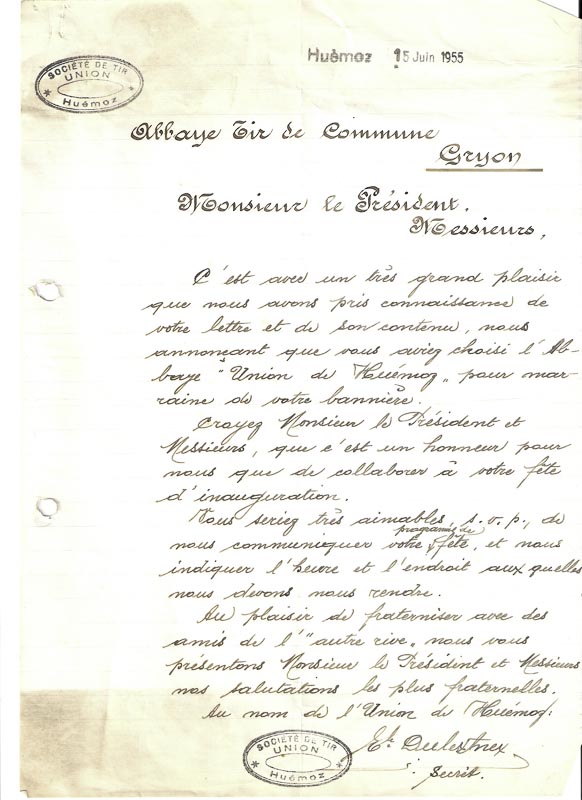 SOCIÉTÉ DE TIR
UNION
Huémoz
Huèmoz 15 Juin 1955
Abbaye Tir de Commune
Gryon
Monsieur le Président.
Messieurs,
C'est avec un très grand plaisir
que nous avons pris connaissance de
votre lettre et de son contenu, nous
annonçant que vous aviez choisi l'Ab-
baye "Union de Huémoz" pour mar-
raine de votre bannière.
Croyez Monsieur le Président et
Messieurs, que c'est un honneur pour
nous que de collaborer à votre fête
d'inauguration.
Vous seriez très aimables, s.v.p, de
programme de
nous communiquer votre fête, et nous
indiquer l'heure et l'endroit aux quelles
nous devons nous rendre.
Au plaisir de fraterniser avec des
amis de l'"autre rive", nous vous
présentons Monsieur le Présidint et Messieurs
nos salutations les plus fraternelles.
Au nom de l'Union de Huémoz:
Secrét.
SOCIÉTÉ DE TIR
UNION
Huémoz